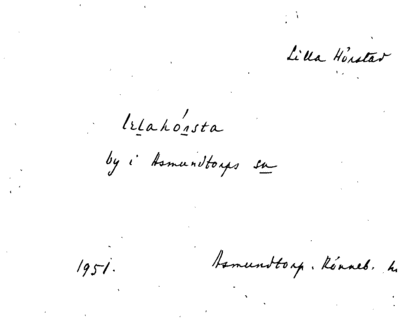 Lilla Hörstad
lɛlahórsta
by i Asmundtorps sn
1951.
Asmundtorp. Rönneb. h